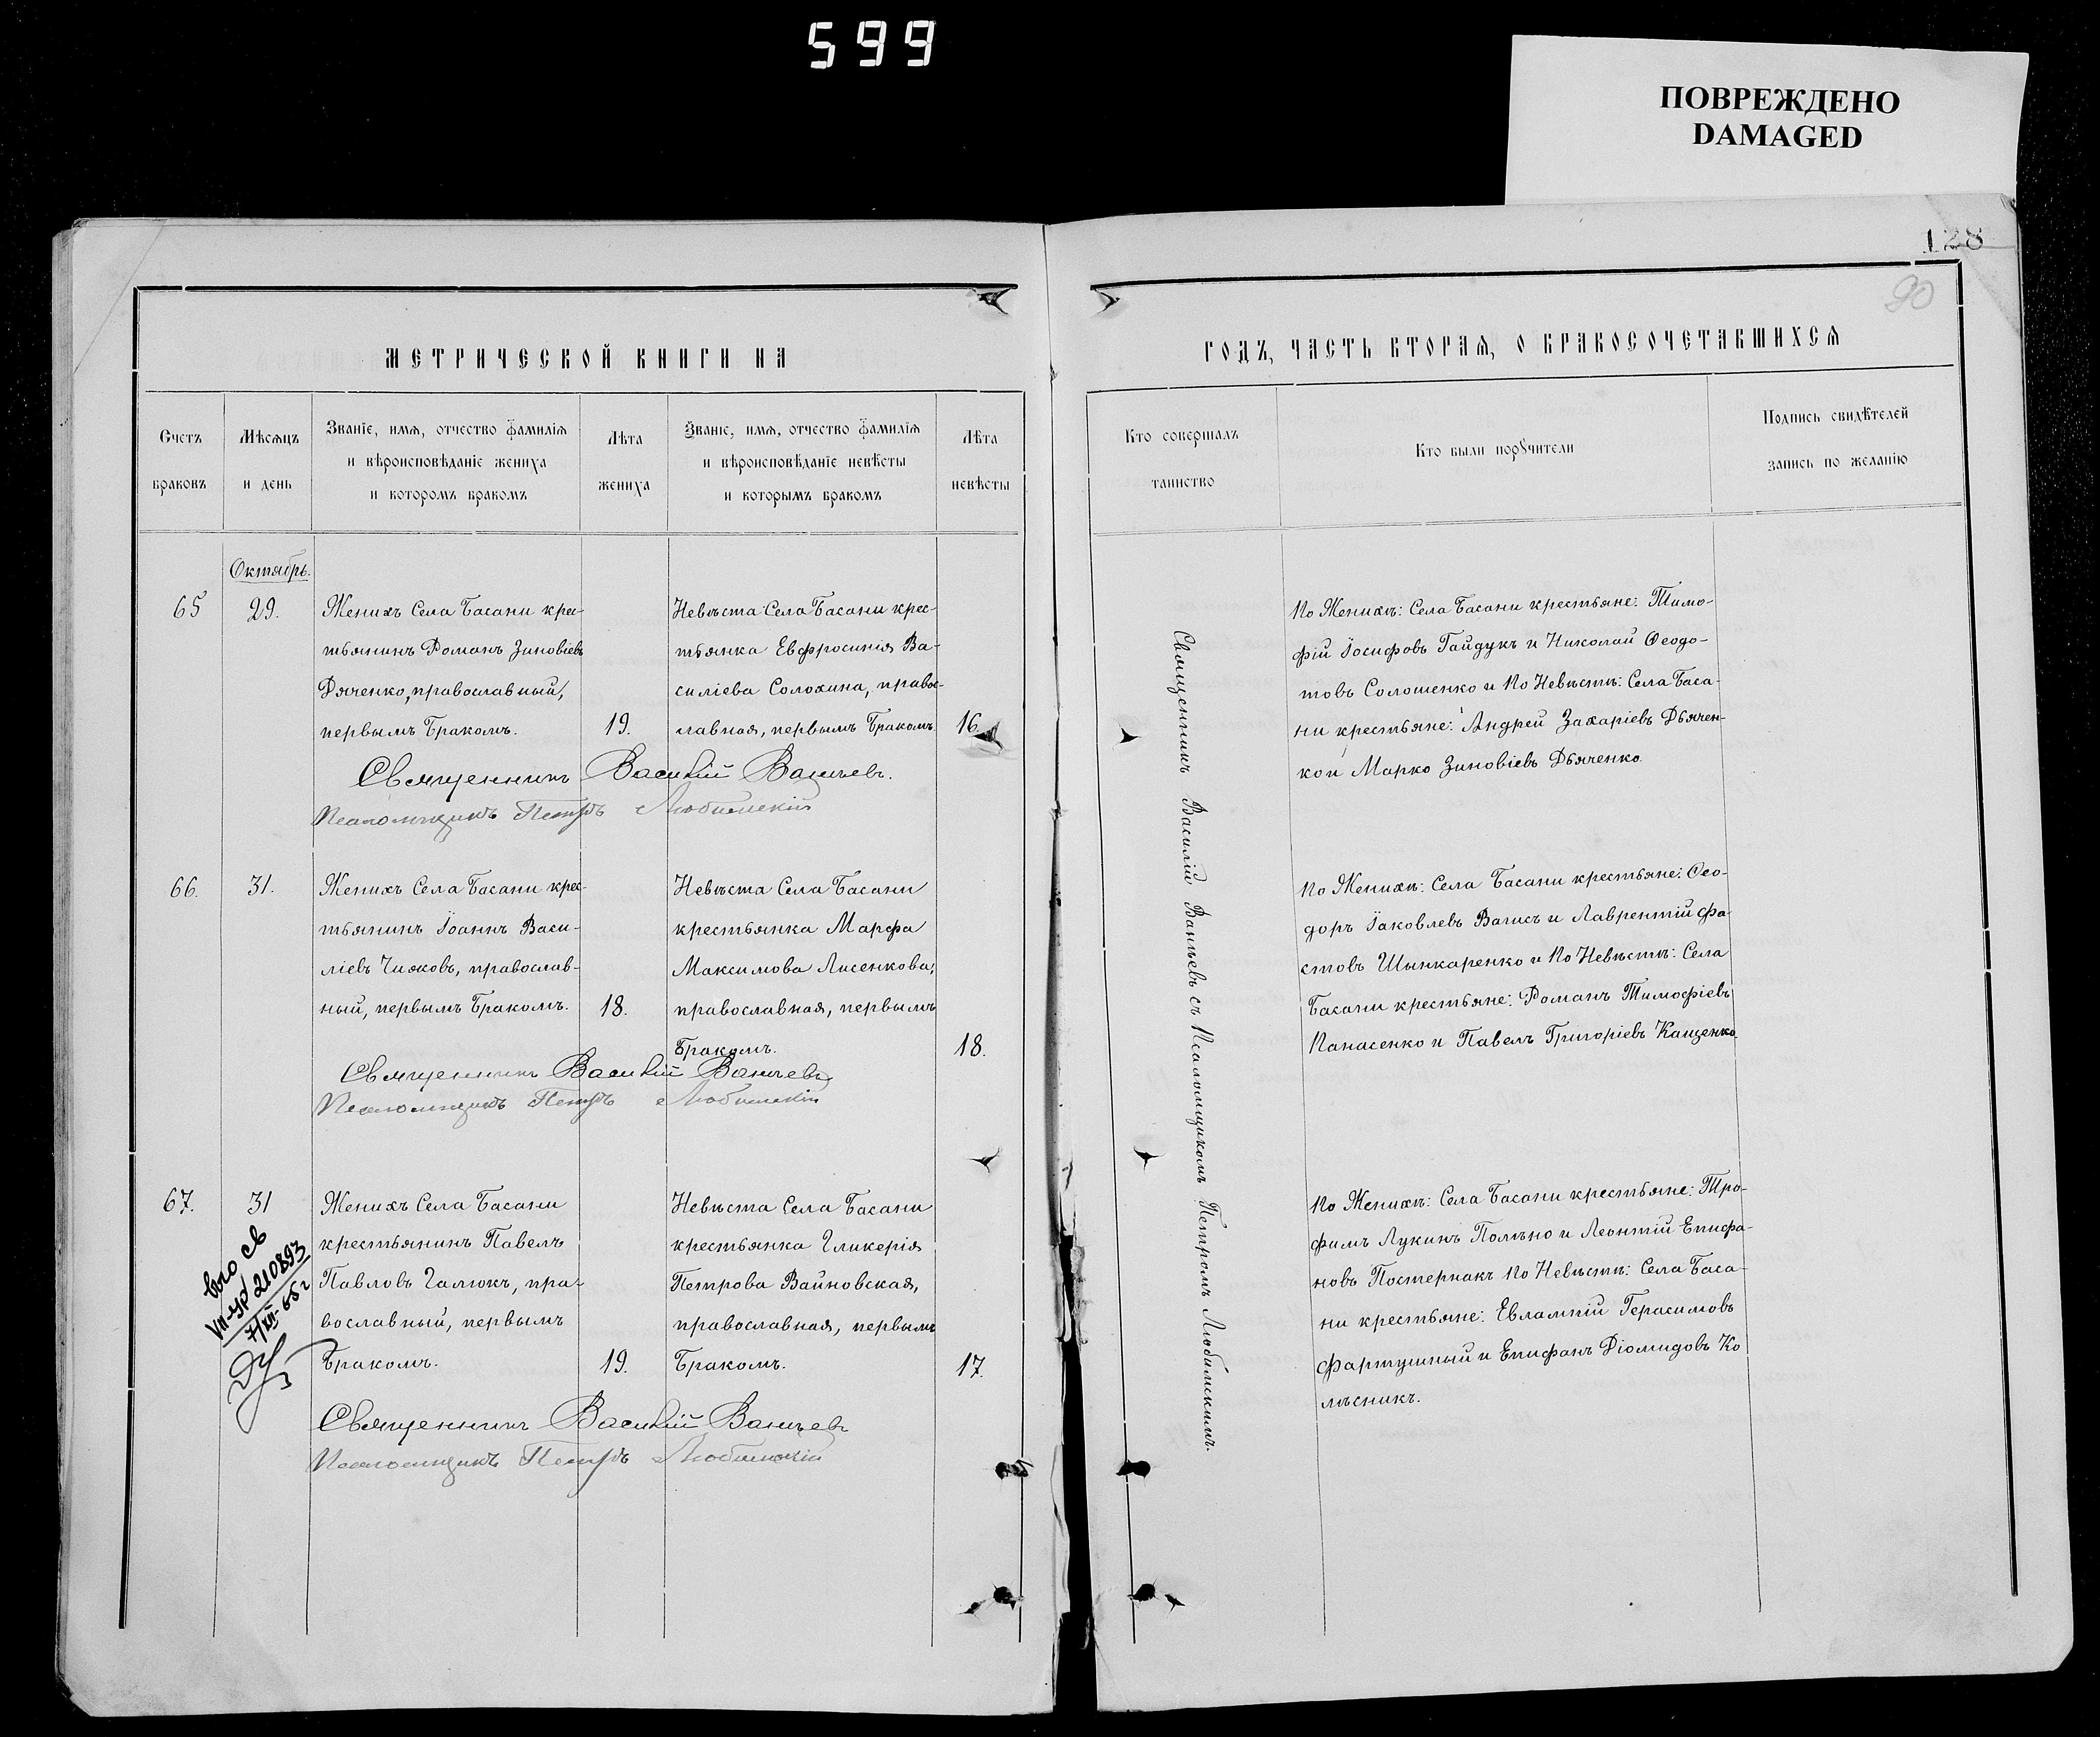 599
ПОВРЕЖДЕНО
DAMAGED
128
90
МЕТРИЧЕСКОЙ КНИГИ НА
Счетъ браковъ
Мѣсяцъ и день
Званіе, имя, отчество фамилія
и вѣроисповѣданіе жениха
и которомъ бракомъ
Лѣта жениха
Званіе, имя, отчество фамилія
и вѣроисповѣданіе невѣсты
и которымъ бракомъ
Лѣта невѣсты
Октябрь.
65
29.
Женихъ Села Басани крес-
тьянинъ Романъ Зиновіевъ
Дяченко, православный,
первымъ бракомъ.
19.
Невѣста Села Басани крес-
тьянка Евфросинія Ва-
силіева Солохина, право-
славная, первымъ бракомъ
16.
Священникъ Василій
Псаломщикъ Петръ Любимскій
66.
31.
Женихъ Села Басани крес-
тьянинъ Іоаннъ Васи-
ліевъ Чижовъ, православ-
ный, первымъ бракомъ.
18.
Невѣста Села Басани
крестьянка Марфа
Максимова Лисенкова,
православная, первымъ
бракомъ.
18.
Священникъ Василій
Псаломщикъ Петръ Любимскій
67.
31
Женихъ Села Басани
крестьянинъ Павелъ
Павловъ Галюкъ, пра-
вославный, первымъ
бракомъ.
19.
Невѣста Села Басани
крестьянка Гликерія
Петрова Вайновская,
православная, первымъ
бракомъ.
17.
св
210893
Священникъ Василій
Псаломщикъ Петръ Любимскій
ГОДЪ, ЧАСТЬ ВТОРАЯ, О БРАКОСОЧЕТАВШИХСЯ
Кто совершалъ
таинство
Кто были поручители
Подпись свидѣтелей
запись по желанію
Священникъ Василій съ Псаломщикомъ Петромъ Любимскимъ.
По Женихѣ: Села Басани крестьяне: Тимо-
фій Іосифовъ Гайдукъ и Николай Ѳеодо-
товъ Солошенко и По Невѣстѣ: Села Баса-
ни крестьяне: Андрей Захаріевъ Дьячен-
ко и Марко Зиновіевъ Дьяченко
По Женихѣ: Села Басани крестьяне: Ѳео-
доръ Іаковлевъ Вагисъ и Лаврентій Фа-
стовъ Шынкаренко и По Невѣстѣ: Села
Басани крестьяне: Романъ Тимофіевъ
Панасенко и Павелъ Григоріевъ Кащенко
По Женихѣ: Села Басани крестьяне: Тро-
фимъ Лукинъ Полѣно и Леонтій Епифа-
новъ Постернакъ По Невѣстѣ: Села Баса-
ни крестьяне: Евлампій Герасимовъ
Фартушный и Епифанъ Діомидовъ Ко
лѣсникъ.